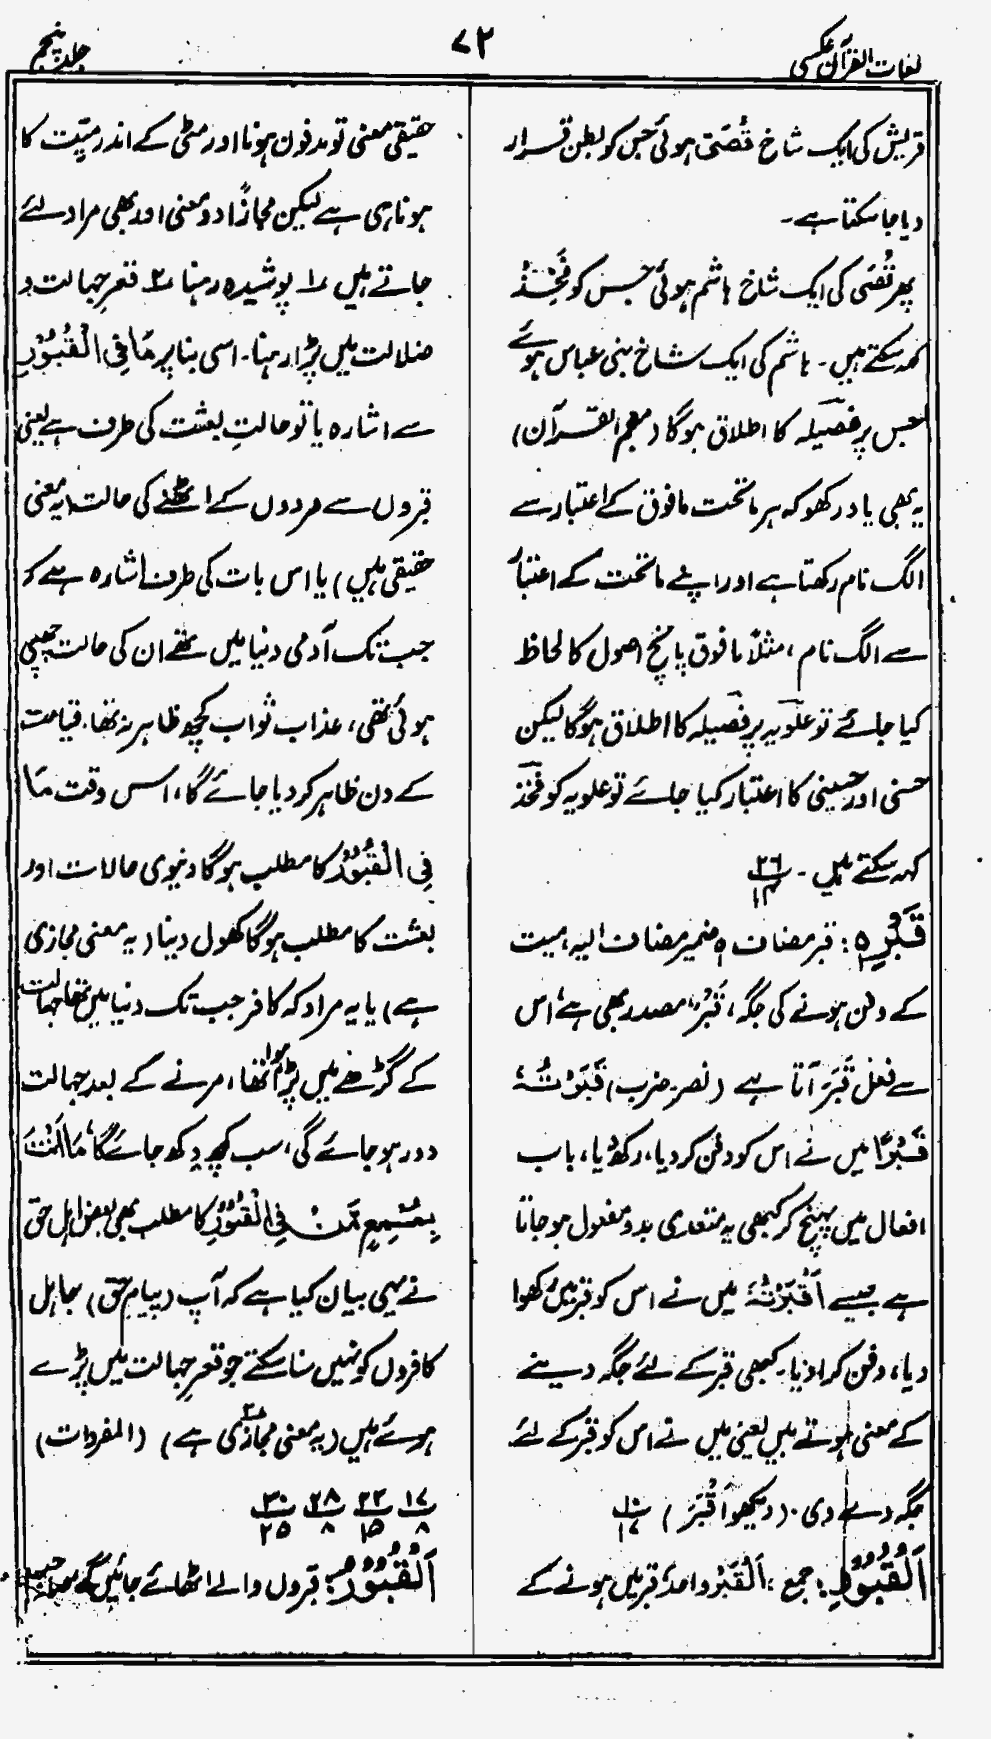 لغات القرآن عکسی
۷۲
جلد پنجم
قریش کی ایک شاخ قُصَی ہوئی جس کو بطن قرار
دیا جا سکتا ہے۔
پھر قُصَی کی ایک شاخ ہاشم ہوئی جس کو فَخِذ
کہہ سکتے ہیں۔ ہاشم کی ایک شاخ بنی عباس ہوئے
جس پر فصیلہ کا اطلاق ہوگا (معجم القرآن)
یہ بھی یاد رکھو کہ ہر ماتحت مافوق کے اعتبار سے
الگ نام رکھتا ہے اور اپنے ماتحت کے اعتبار
سے الگ نام، مثلاً مافوق پانچ اصول کا لحاظ
کیا جائے تو علویہ پر فصیلہ کا اطلاق ہوگا لیکن
حسنی اور حسینی کا اعتبار کیا جائے تو علویہ کو فخذ
کہہ سکتے ہیں۔ ۲۶/۱۴
قَبْرِہٖ: قبر مضاف ہ ضمیر مضاف الیہ، میت
کے دفن ہونے کی جگہ، قَبْرٌ مصدر بھی ہے، اس
سے فعل قَبَرَ آتا ہے (نصر۔ ضرب) قَبَرْتُہٗ
قَبْرًا میں نے اس کو دفن کر دیا، رکھ دیا، باب
افعال میں پہنچ کر کبھی یہ متعدی بدو مفعول ہو جاتا
ہے جیسے اَقْبَرْتُہٗ میں نے اس کو قبر میں رکھوا
دیا، دفن کرا دیا۔ کبھی قبر کے لئے جگہ دینے
کے معنی ہوتے ہیں یعنی میں نے اس کو قبر کے لئے
جگہ دے دی۔ (دیکھو اَقْبَرَ) ۱۰/۱۷
اَلْقُبُوْرِ: جمع: اَلْقَبْرُ واحد، قبر میں ہونے کے
حقیقی معنی تو مدفون ہونا اور مٹی کے اندر میّت کا
ہونا ہی ہے لیکن مجازًا دو معنی اور بھی مراد لئے
جاتے ہیں ۱؎ پوشیدہ رہنا ۲؎ قعرِ جہالت و
ضلالت میں پڑا رہنا۔ اسی بنا پر مَا فِی الْقُبُوْرِ
سے اشارہ یا تو حالتِ بعثت کی طرف ہے یعنی
قبروں سے مردوں کے اٹھنے کی حالت (یہ معنی
حقیقی ہیں) یا اس بات کی طرف اشارہ ہے کہ
جب تک آدمی دنیا میں تھے ان کی حالت چھپی
ہوئی تھی، عذاب ثواب کچھ ظاہر نہ تھا۔ قیامت
کے دن ظاہر کر دیا جائے گا، اس وقت مَا
فِی الْقُبُوْرِ کا مطلب ہوگا دنیوی حالات اور
بعثت کا مطلب ہوگا کھول دینا (یہ معنی مجازی
ہے) یا یہ مراد کہ کافر جب تک دنیا میں تھا جہالت
کے گڑھے میں پڑا ہوا تھا، مرنے کے بعد جہالت
دور ہو جائے گی، سب کچھ دکھ جائے گا، مَا اَنْتَ
بِمُسْمِعٍ مَّنْ فِی الْقُبُوْرِ کا مطلب بھی بعض اہل حق
نے یہی بیان کیا ہے کہ آپ (پیامِ حق) جاہل
کافروں کو نہیں سنا سکتے جو قعرِ جہالت میں پڑے
ہوئے ہیں (یہ معنی مجازی ہے) (المفردات)
۱۷/۸ ۲۲/۱۵ ۲۸/۸ ۳۰/۲۵
اَلْقُبُوْرُ: قبروں والے اٹھائے جائیں گے